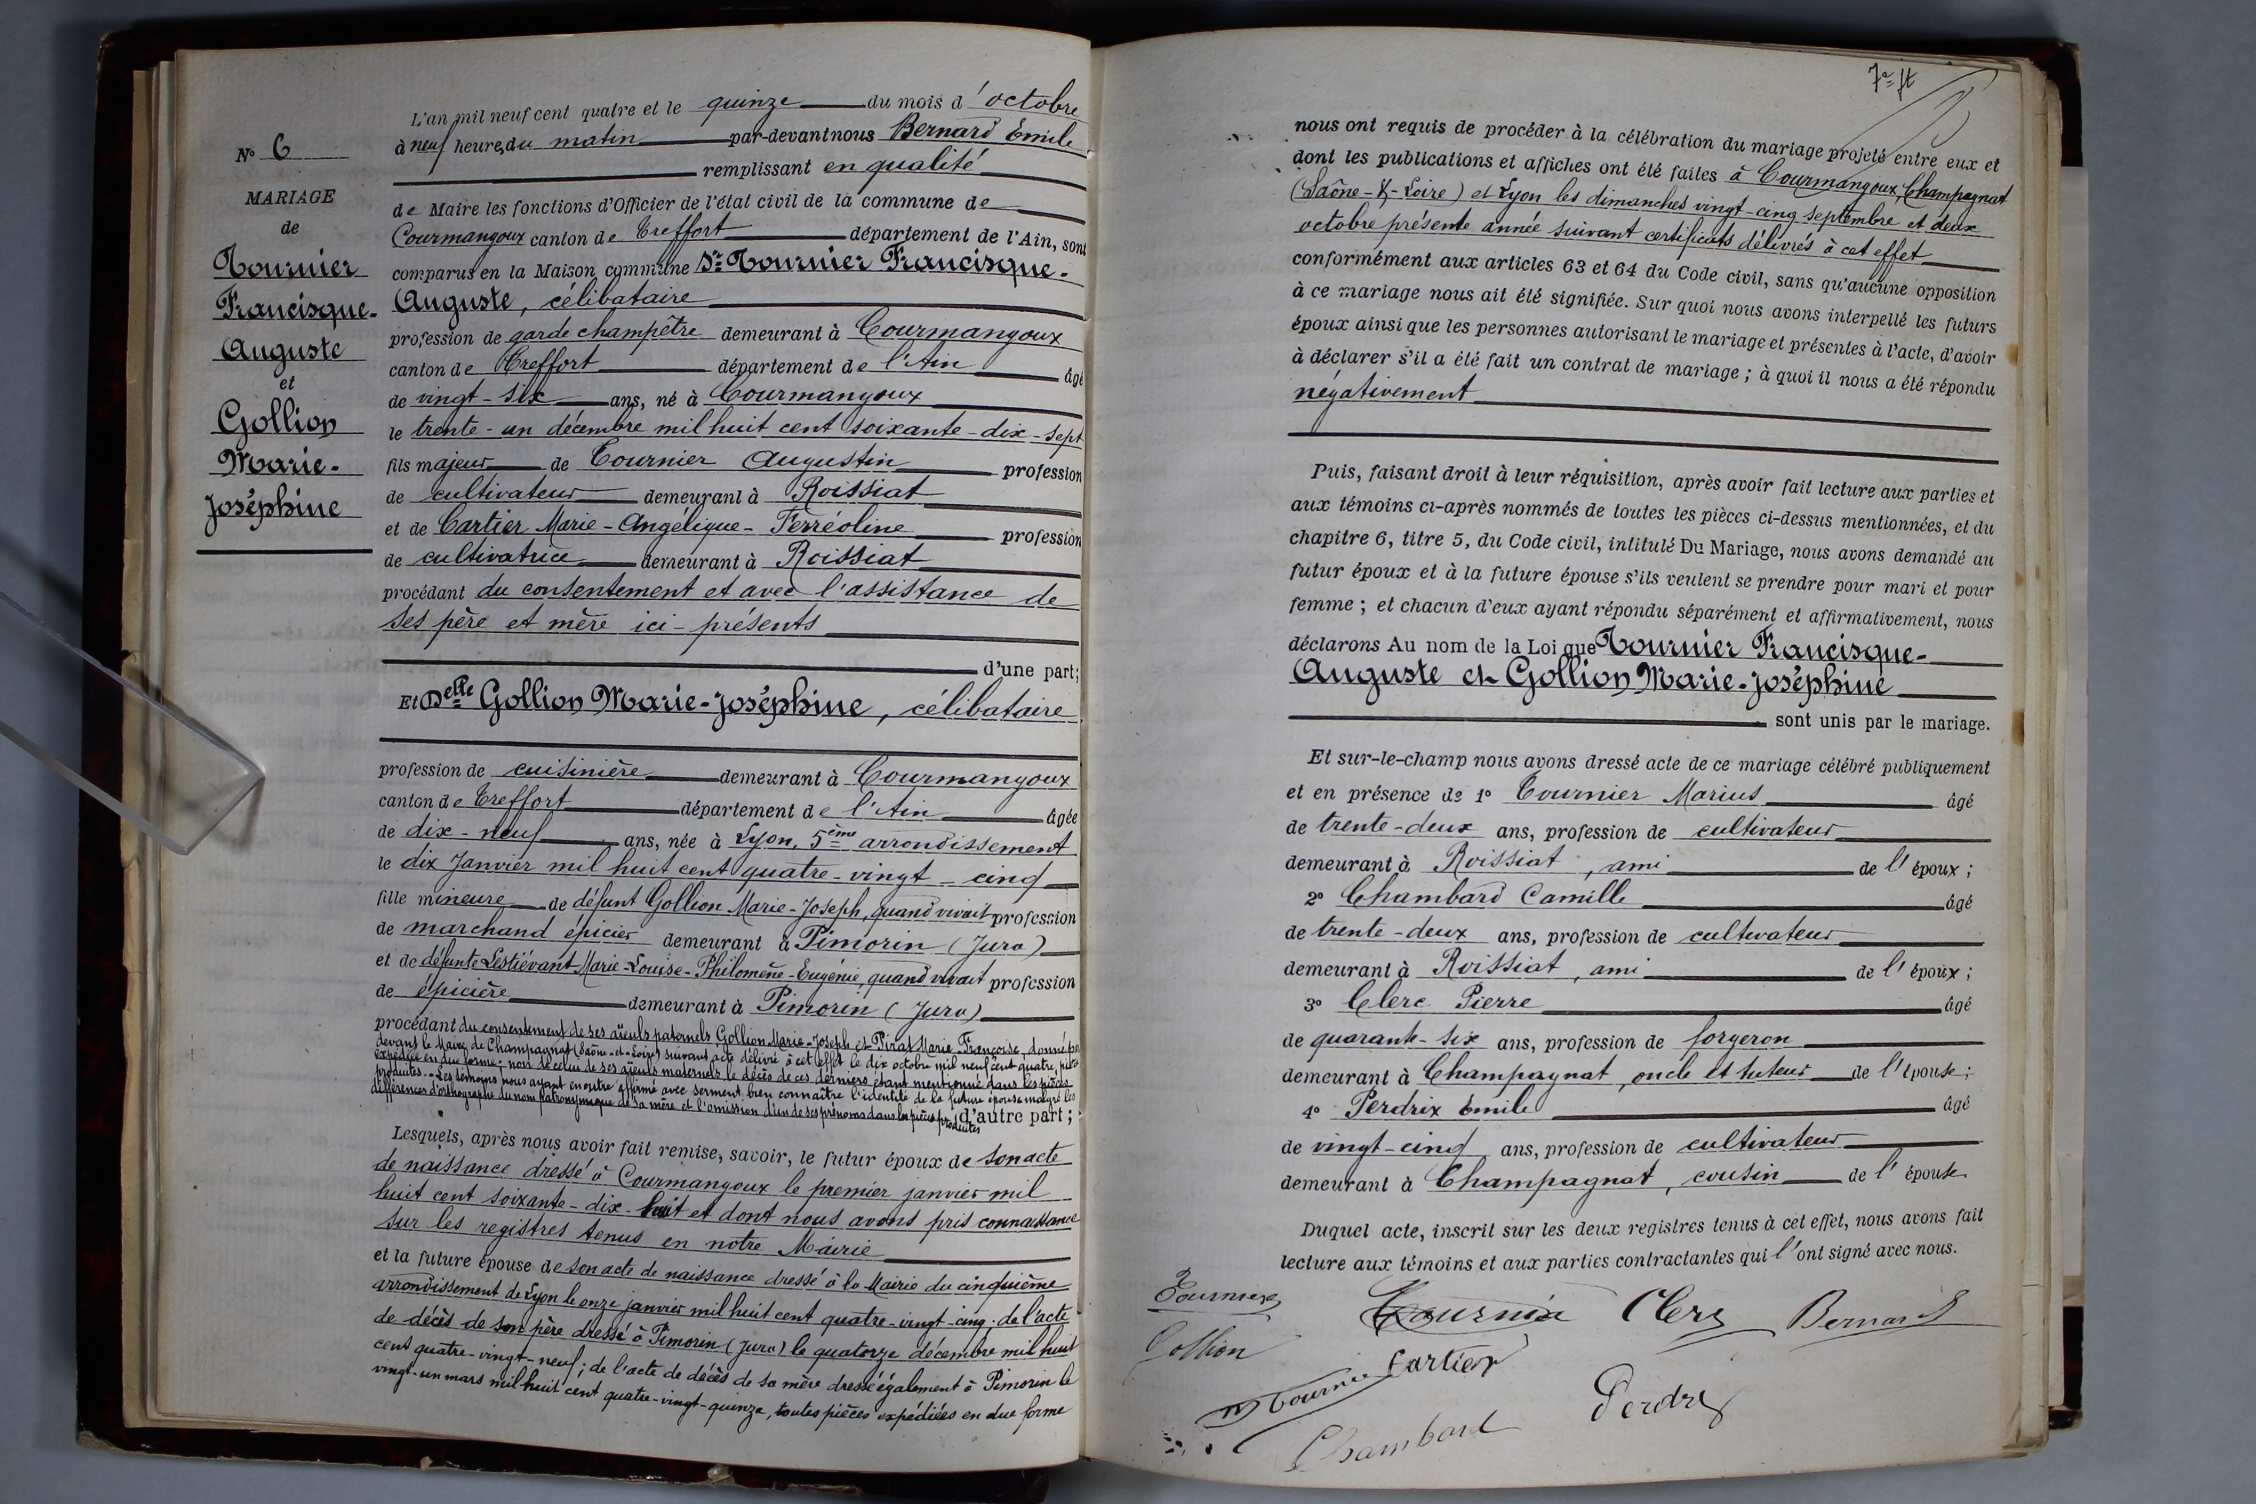 N° 6
MARIAGE
de
Tournier
Francisque-
Auguste
et
Gollion
Marie-
Joséphine
L'an mil neuf cent quatre et le quinze du mois d'octobre
à neuf heures du matin par-devant nous Bernard Emile
remplissant en qualité
de Maire les fonctions d'Officier de l'état civil de la commune de
Courmangoux canton de Treffort département de l'Ain, sont
comparus en la Maison commune Sr Tournier Francisque-
Auguste, célibataire
profession de garde champêtre demeurant à Courmangoux
canton de Treffort département de l'Ain âgé
de vingt-six ans, né à Courmangoux
le trente-un décembre mil huit cent soixante-dix-sept
fils majeur de Tournier Augustin profession
de cultivateur demeurant à Roissiat
et de Cartier Marie-Angélique-Ferréoline profession
de cultivatrice demeurant à Roissiat
procédant du consentement et avec l'assistance de
ses père et mère ici-présents
d'une part;
Et Delle Gollion Marie-Joséphine, célibataire
profession de cuisinière demeurant à Courmangoux
canton de Treffort département de l'Ain âgée
de dix-neuf ans, née à Lyon, 5ème arrondissement
le dix Janvier mil huit cent quatre-vingt-cinq
fille mineure de défunt Gollion Marie-Joseph, quand vivait profession
de marchand épicier demeurant à Pimorin (Jura)
et de défunte Lestiévant Marie-Louise-Philomène-Eugénie, quand vivait profession
de épicière demeurant à Pimorin (Jura)
procédant du consentement de ses aïeuls paternels Gollion Marie-Joseph et Pirat Marie-Françoise, donné par
devant le Maire de Champagnat (Saône-et-Loire) suivant acte délivré à cet effet le dix octobre mil neuf cent quatre, pièce
expédiée en due forme, non de celui de ses aïeuls maternels le décès de ces derniers étant mentionné dans les pièces
produites. Les témoins nous ayant en outre affirmé avec serment bien connaître l'identité de la future épouse malgré les
différences d'orthographe du nom patronymique de sa mère et l'omission d'un de ses prénoms dans les pièces produites d'autre part;
Lesquels, après nous avoir fait remise, savoir, le futur époux de son acte
de naissance dressé à Courmangoux le premier janvier mil
huit cent soixante-dix-huit et dont nous avons pris connaissance
sur les registres tenus en notre Mairie
et la future épouse de son acte de naissance dressé à la Mairie du cinquième
arrondissement de Lyon le onze janvier mil huit cent quatre-vingt-cinq; de l'acte
de décès de son père dressé à Pimorin (Jura) le quatorze décembre mil huit
cent quatre-vingt-neuf; de l'acte de décès de sa mère dressé également à Pimorin le
vingt-un mars mil huit cent quatre-vingt-quinze, toutes pièces expédiées en due forme
7e ft
nous ont requis de procéder à la célébration du mariage projeté entre eux et
dont les publications et affiches ont été faites à Courmangoux, Champagnat
(Saône-&-Loire) et Lyon les dimanches vingt-cinq septembre et deux
octobre présente année suivant certificats délivrés à cet effet
conformément aux articles 63 et 64 du Code civil, sans qu'aucune opposition
à ce mariage nous ait été signifiée. Sur quoi nous avons interpellé les futurs
époux ainsi que les personnes autorisant le mariage et présentes à l'acte, d'avoir
à déclarer s'il a été fait un contrat de mariage; à quoi il nous a été répondu
négativement
Puis, faisant droit à leur réquisition, après avoir fait lecture aux parties et
aux témoins ci-après nommés de toutes les pièces ci-dessus mentionnées, et du
chapitre 6, titre 5, du Code civil, intitulé Du Mariage, nous avons demandé au
futur époux et à la future épouse s'ils veulent se prendre pour mari et pour
femme; et chacun d'eux ayant répondu séparément et affirmativement, nous
déclarons Au nom de la Loi que Tournier Francisque-
Auguste et Gollion Marie-Joséphine
sont unis par le mariage.
Et sur-le-champ nous avons dressé acte de ce mariage célébré publiquement
et en présence de 1° Tournier Marius âgé
de trente-deux ans, profession de cultivateur
demeurant à Roissiat, ami de l'époux;
2° Chambard Camille âgé
de trente-deux ans, profession de cultivateur
demeurant à Roissiat, ami de l'époux;
3° Clerc Pierre âgé
de quarante-six ans, profession de forgeron
demeurant à Champagnat, oncle et tuteur de l'épouse;
4° Perdrix Emile âgé
de vingt-cinq ans, profession de cultivateur
demeurant à Champagnat, cousin de l'épouse
Duquel acte, inscrit sur les deux registres tenus à cet effet, nous avons fait
lecture aux témoins et aux parties contractantes qui l'ont signé avec nous.
Tournier Tournier Clerc Bernard
Gollion
M Tournier Cartier
Perdrix
Chambard